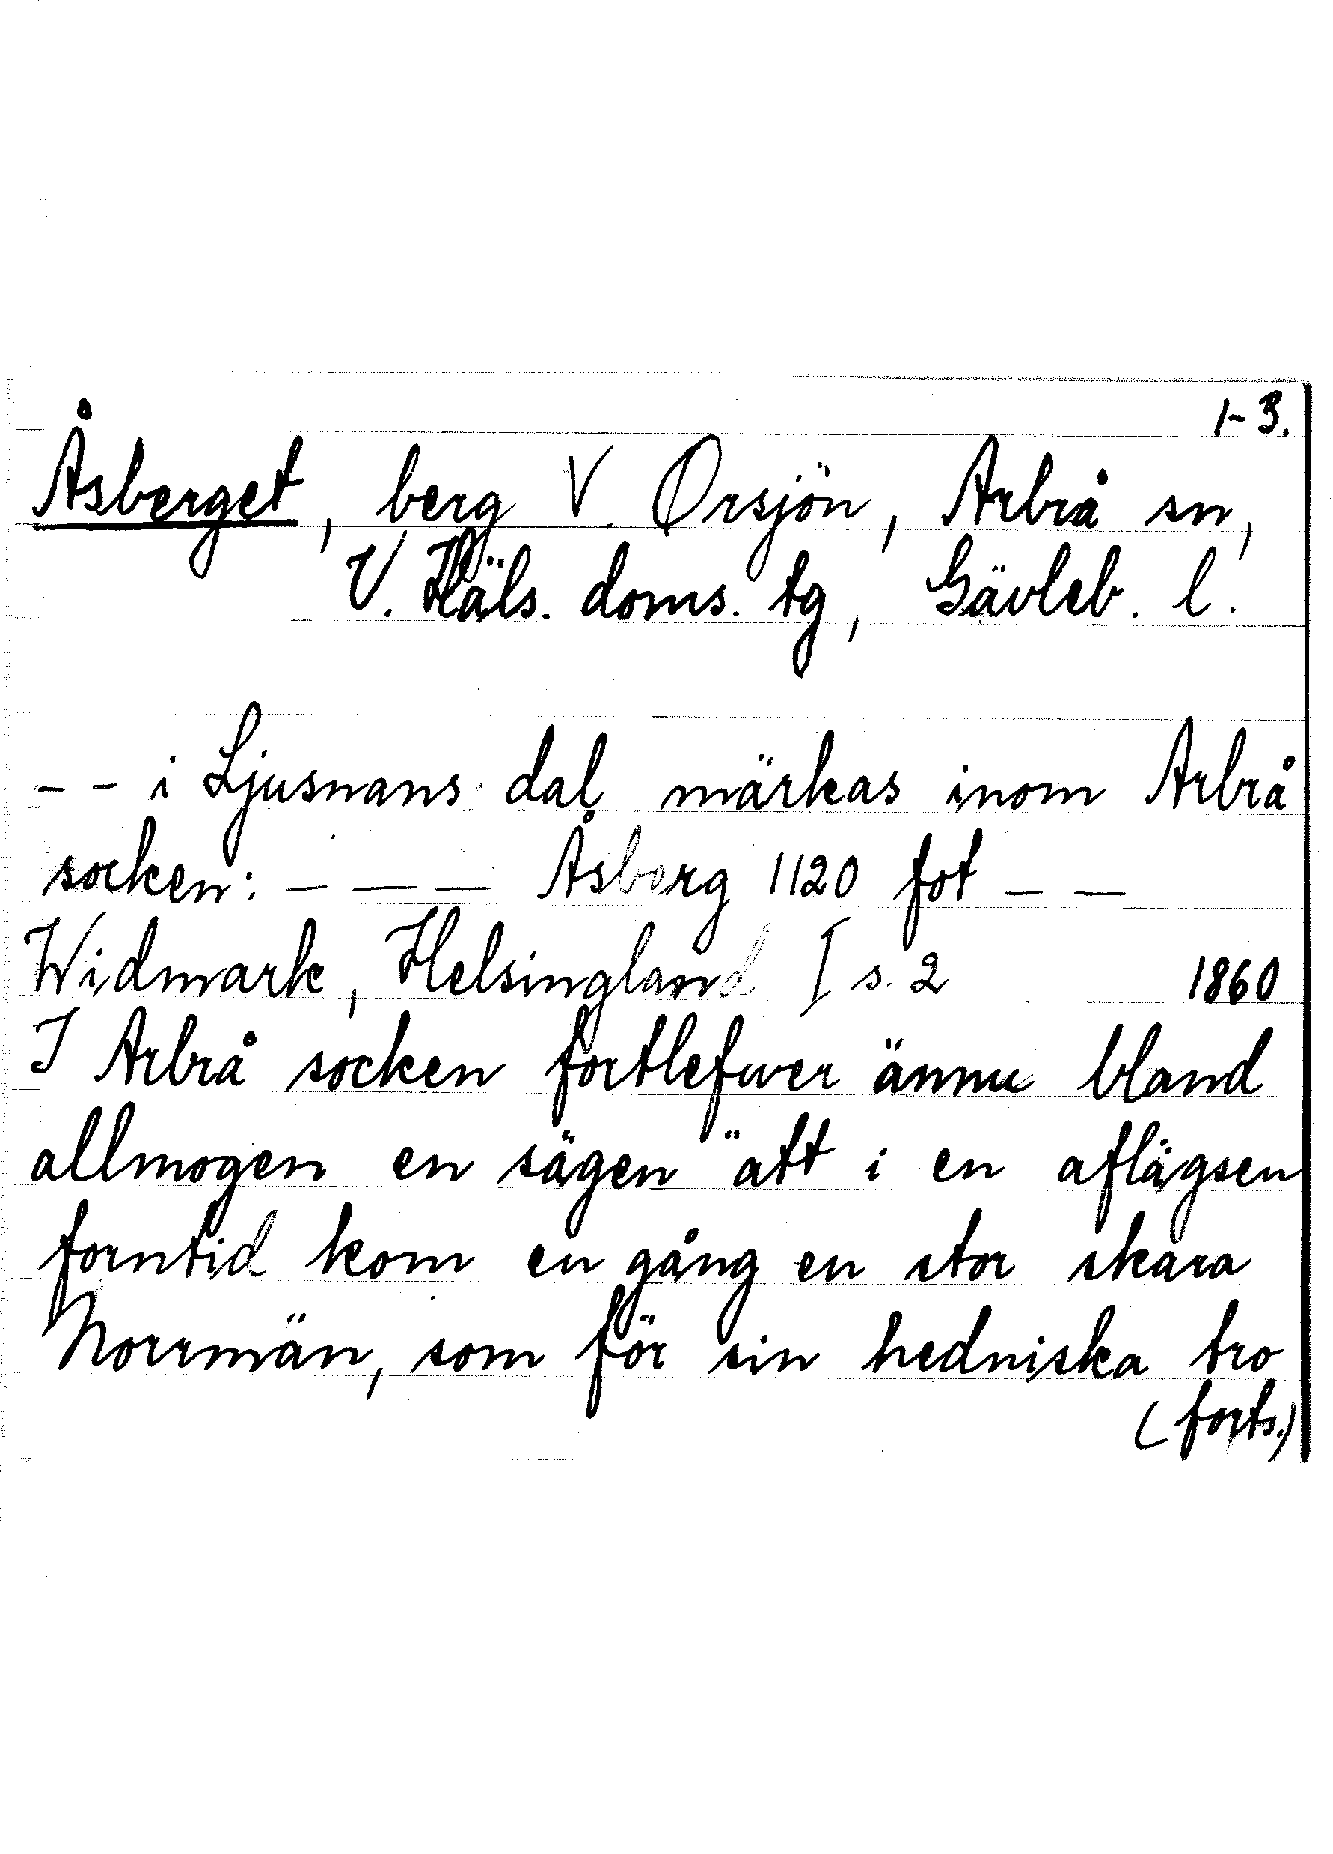 1-3.
Åsberget, berg V. Orsjön, Arbrå sn,
V. Häls. doms. tg, Gävleb. l.
- - i Ljusnans dal märkas inom Arbrå
socken: - - - Åsberg 1120 fot - -
Widmark, Helsingland I s. 2 1860
I Arbrå socken fortlefwer ännu bland
allmogen en sägen "att i en aflägsen
forntid kom en gång en stor skara
Norrmän, som för sin hedniska tro
(forts.)